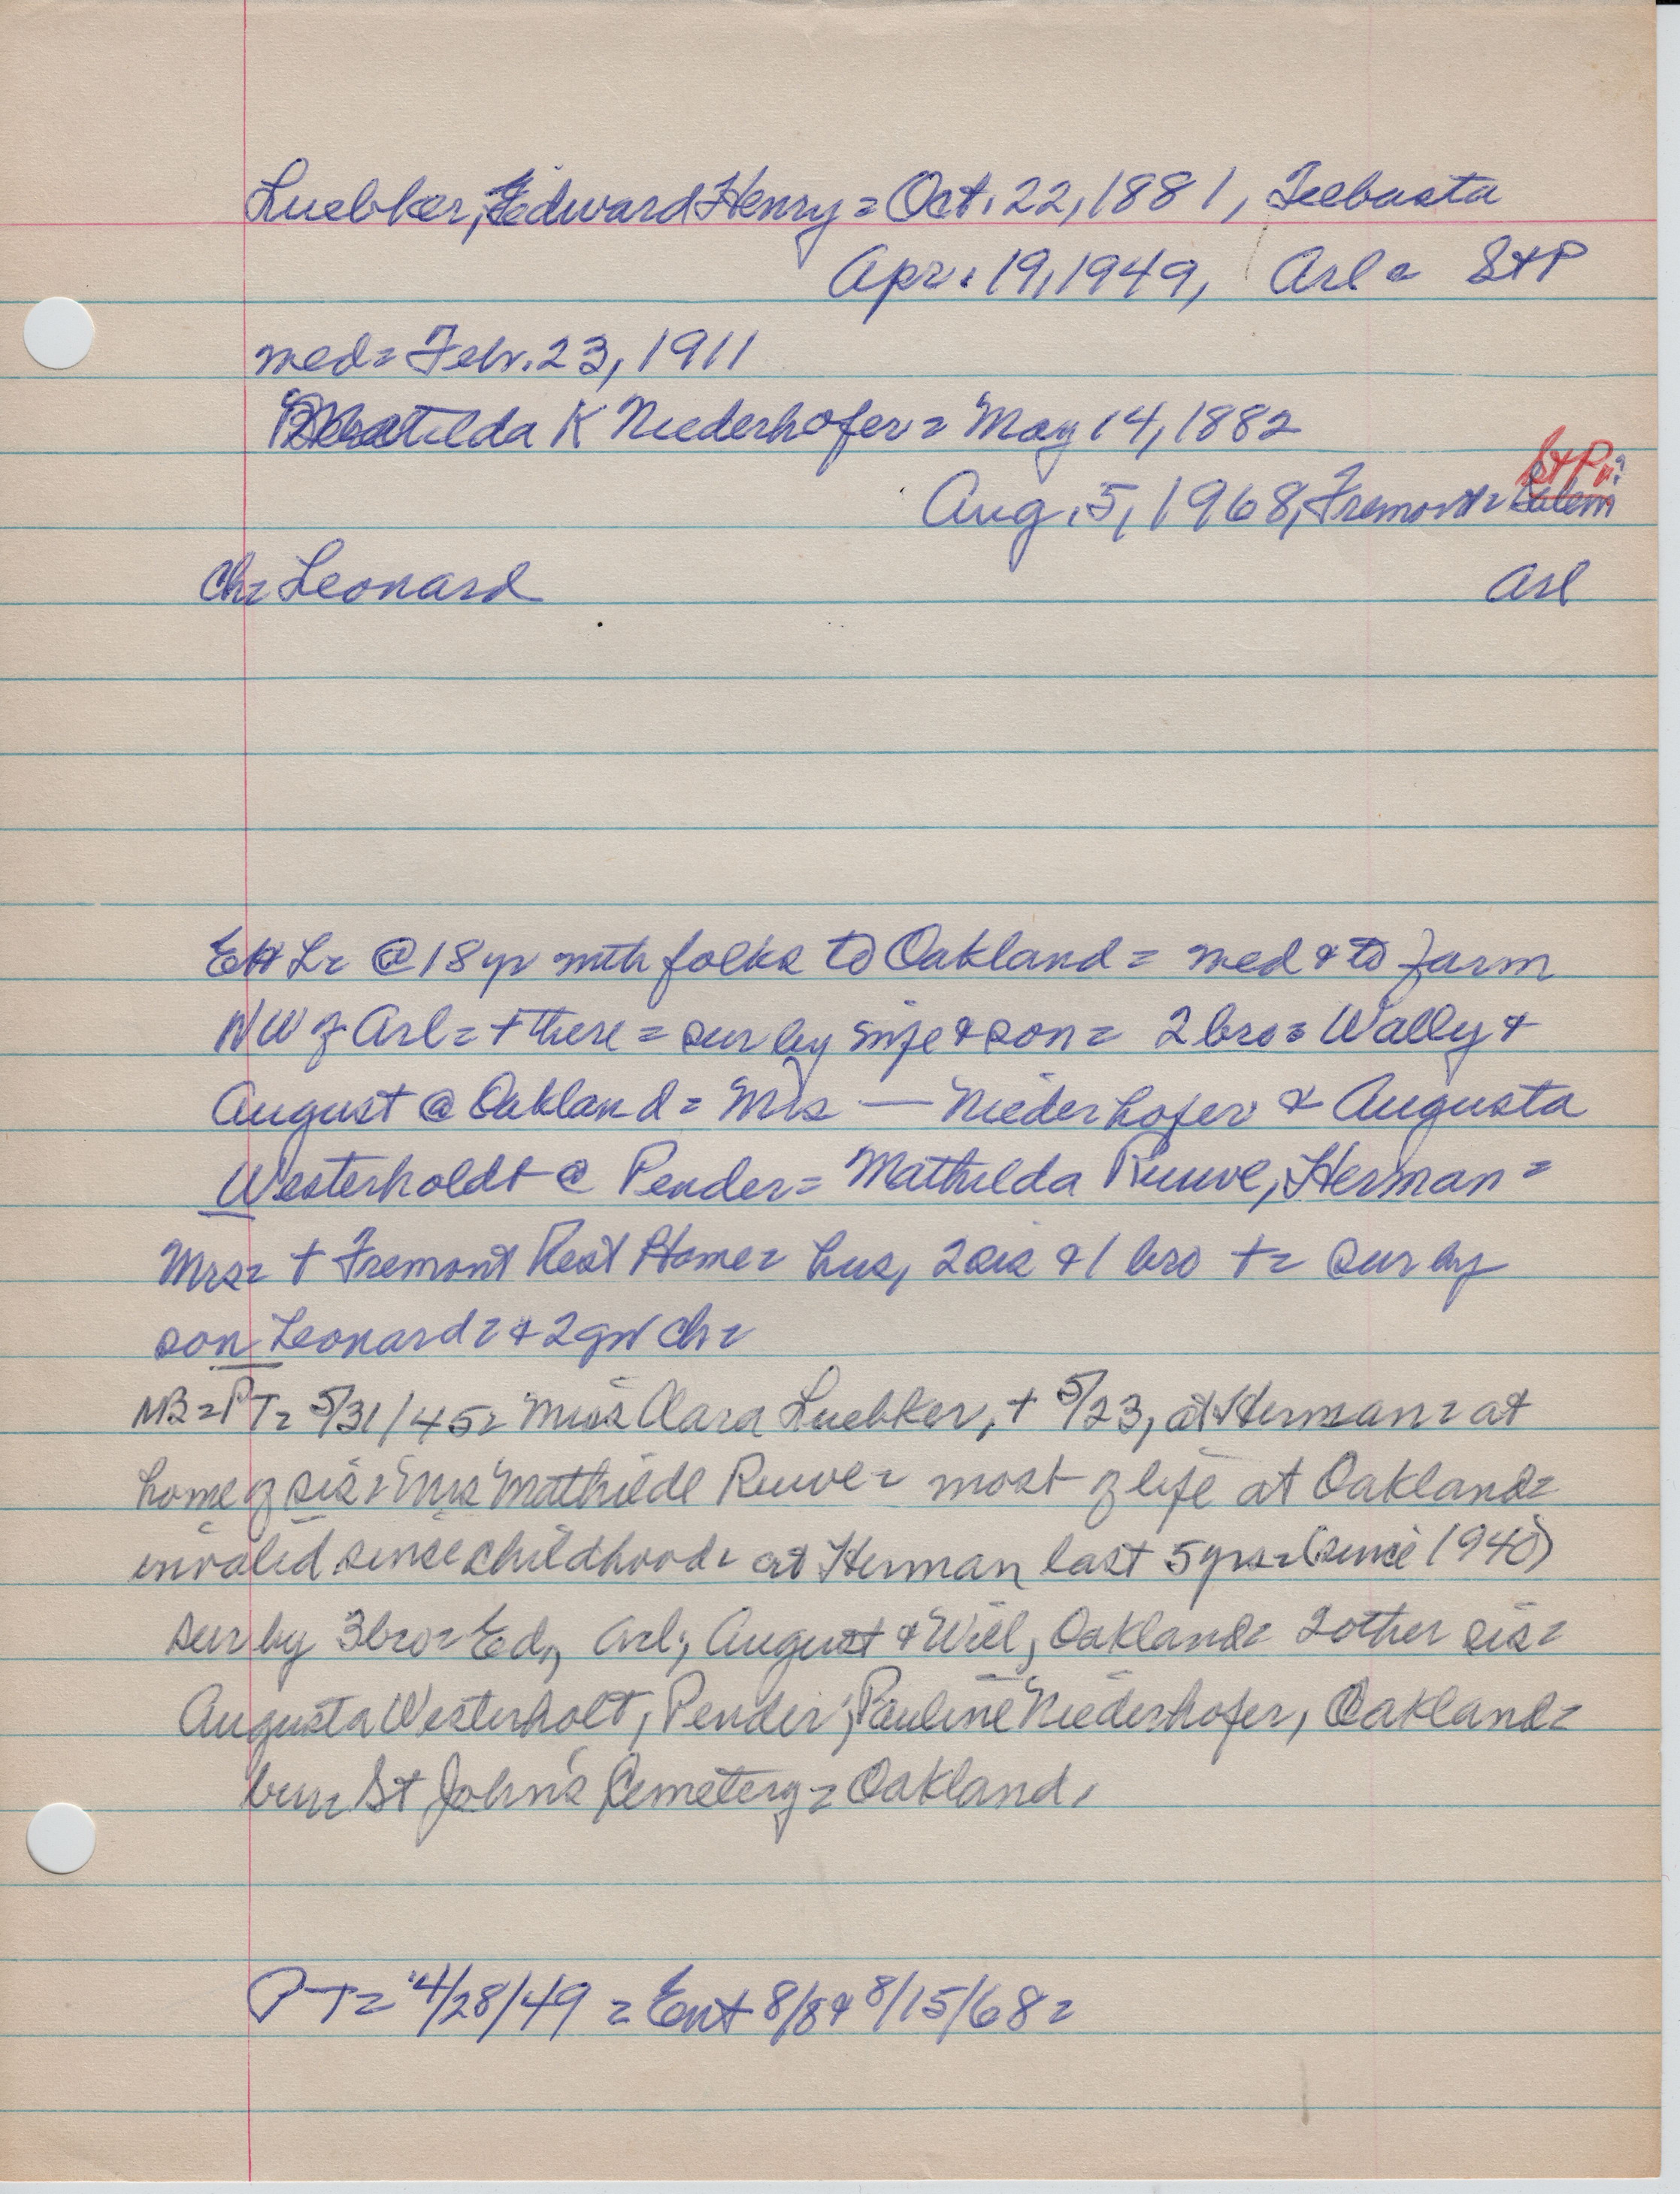 Luebker, Edward Henry = Oct. 22, 1881, Teebasta
Apr. 19, 1949, Arl = St P
med = Febr. 23, 1911
Matilda K Niederhofer = May 14, 1882
St P?
Aug. 5, 1968, Fremont = Salem
Ch = Leonard Arl
EH L = @ 18 yr with folks to Oakland = med & to farm
NW of Arl = + there = sur by wife & son = 2 bro = Wally &
August @ Oakland = Mrs — Niederhofer & Augusta
Westerholdt @ Pender = Mathilda Ruwe, Herman =
Mrs = + Fremont Rest Home = hus, 2 sis & 1 bro + = sur by
son Leonard = & 2 gr ch =
NB = PT = 5/31/45 = Miss Clara Luebker, + 5/23, at Herman = at
home of sis = Mrs Mathilde Ruwe = most of life at Oakland =
invalid since childhood = at Herman last 5 yrs = (since 1940)
sur by 3 bro = Ed, Arl; August & Will, Oakland = 2 other sis =
Augusta Westerholt, Pender; Pauline Niederhofer, Oakland =
bur = St John's Cemetery = Oakland.
PT = 4/28/49 = Ent 8/8 & 8/15/68 =